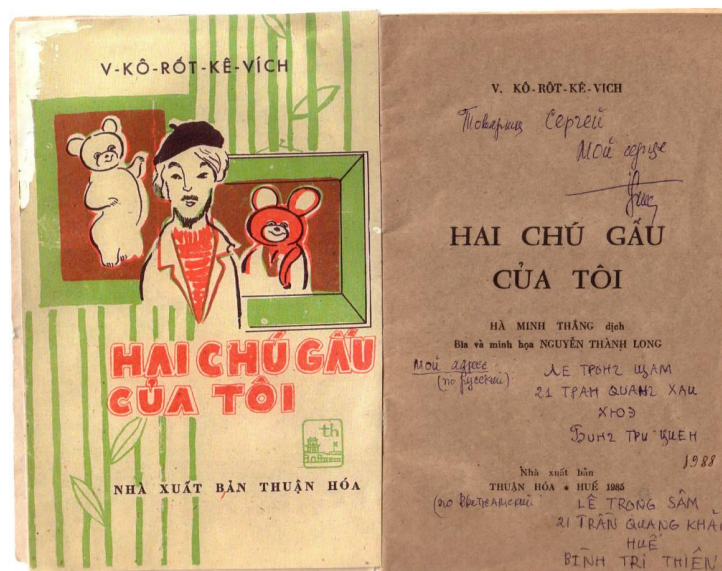 V-KÔ-RỐT-KÊ-VÍCH
HAI CHÚ GẤU
CỦA TÔI
th
NHÀ XUẤT BẢN THUẬN HÓA
V. KÔ-RÔT-KÊ-VICH
Товарищ Сергей
Мой сердце
HAI CHÚ GẤU
CỦA TÔI
HÀ MINH THẮNG dịch
Bìa và minh họa NGUYỄN THÀNH LONG
Мой адрес
(по русский)
ЛЕ ТРОНГ ШАМ
21 ТРАН QUАНГ ХАИ
ХЮЭ
БИНГ ТРИ ЦИЕН
1988
Nhà xuất bản
THUẬN HÓA ★ HUẾ 1985
(по вьетнамский)
LÊ TRỌNG SÂM
21 TRẦN QUANG KHẢI
HUẾ
BÌNH TRỊ THIÊN